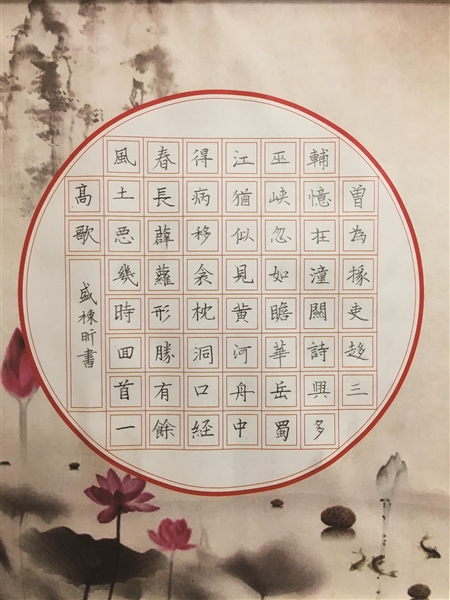 曾為掾吏趍三
輔憶在潼關詩興多
巫峽忽如瞻華岳蜀
江猶似見黄河舟中
得病移衾枕洞口經
春長薜蘿形勝有餘
風土恶幾時囬首一
髙歌
盛棟昕書